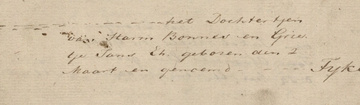 het Dochtertjen
van Harm Bonnes en Grie
tje Jans Eh. geboren den 2
Maart en genoemd Fyk